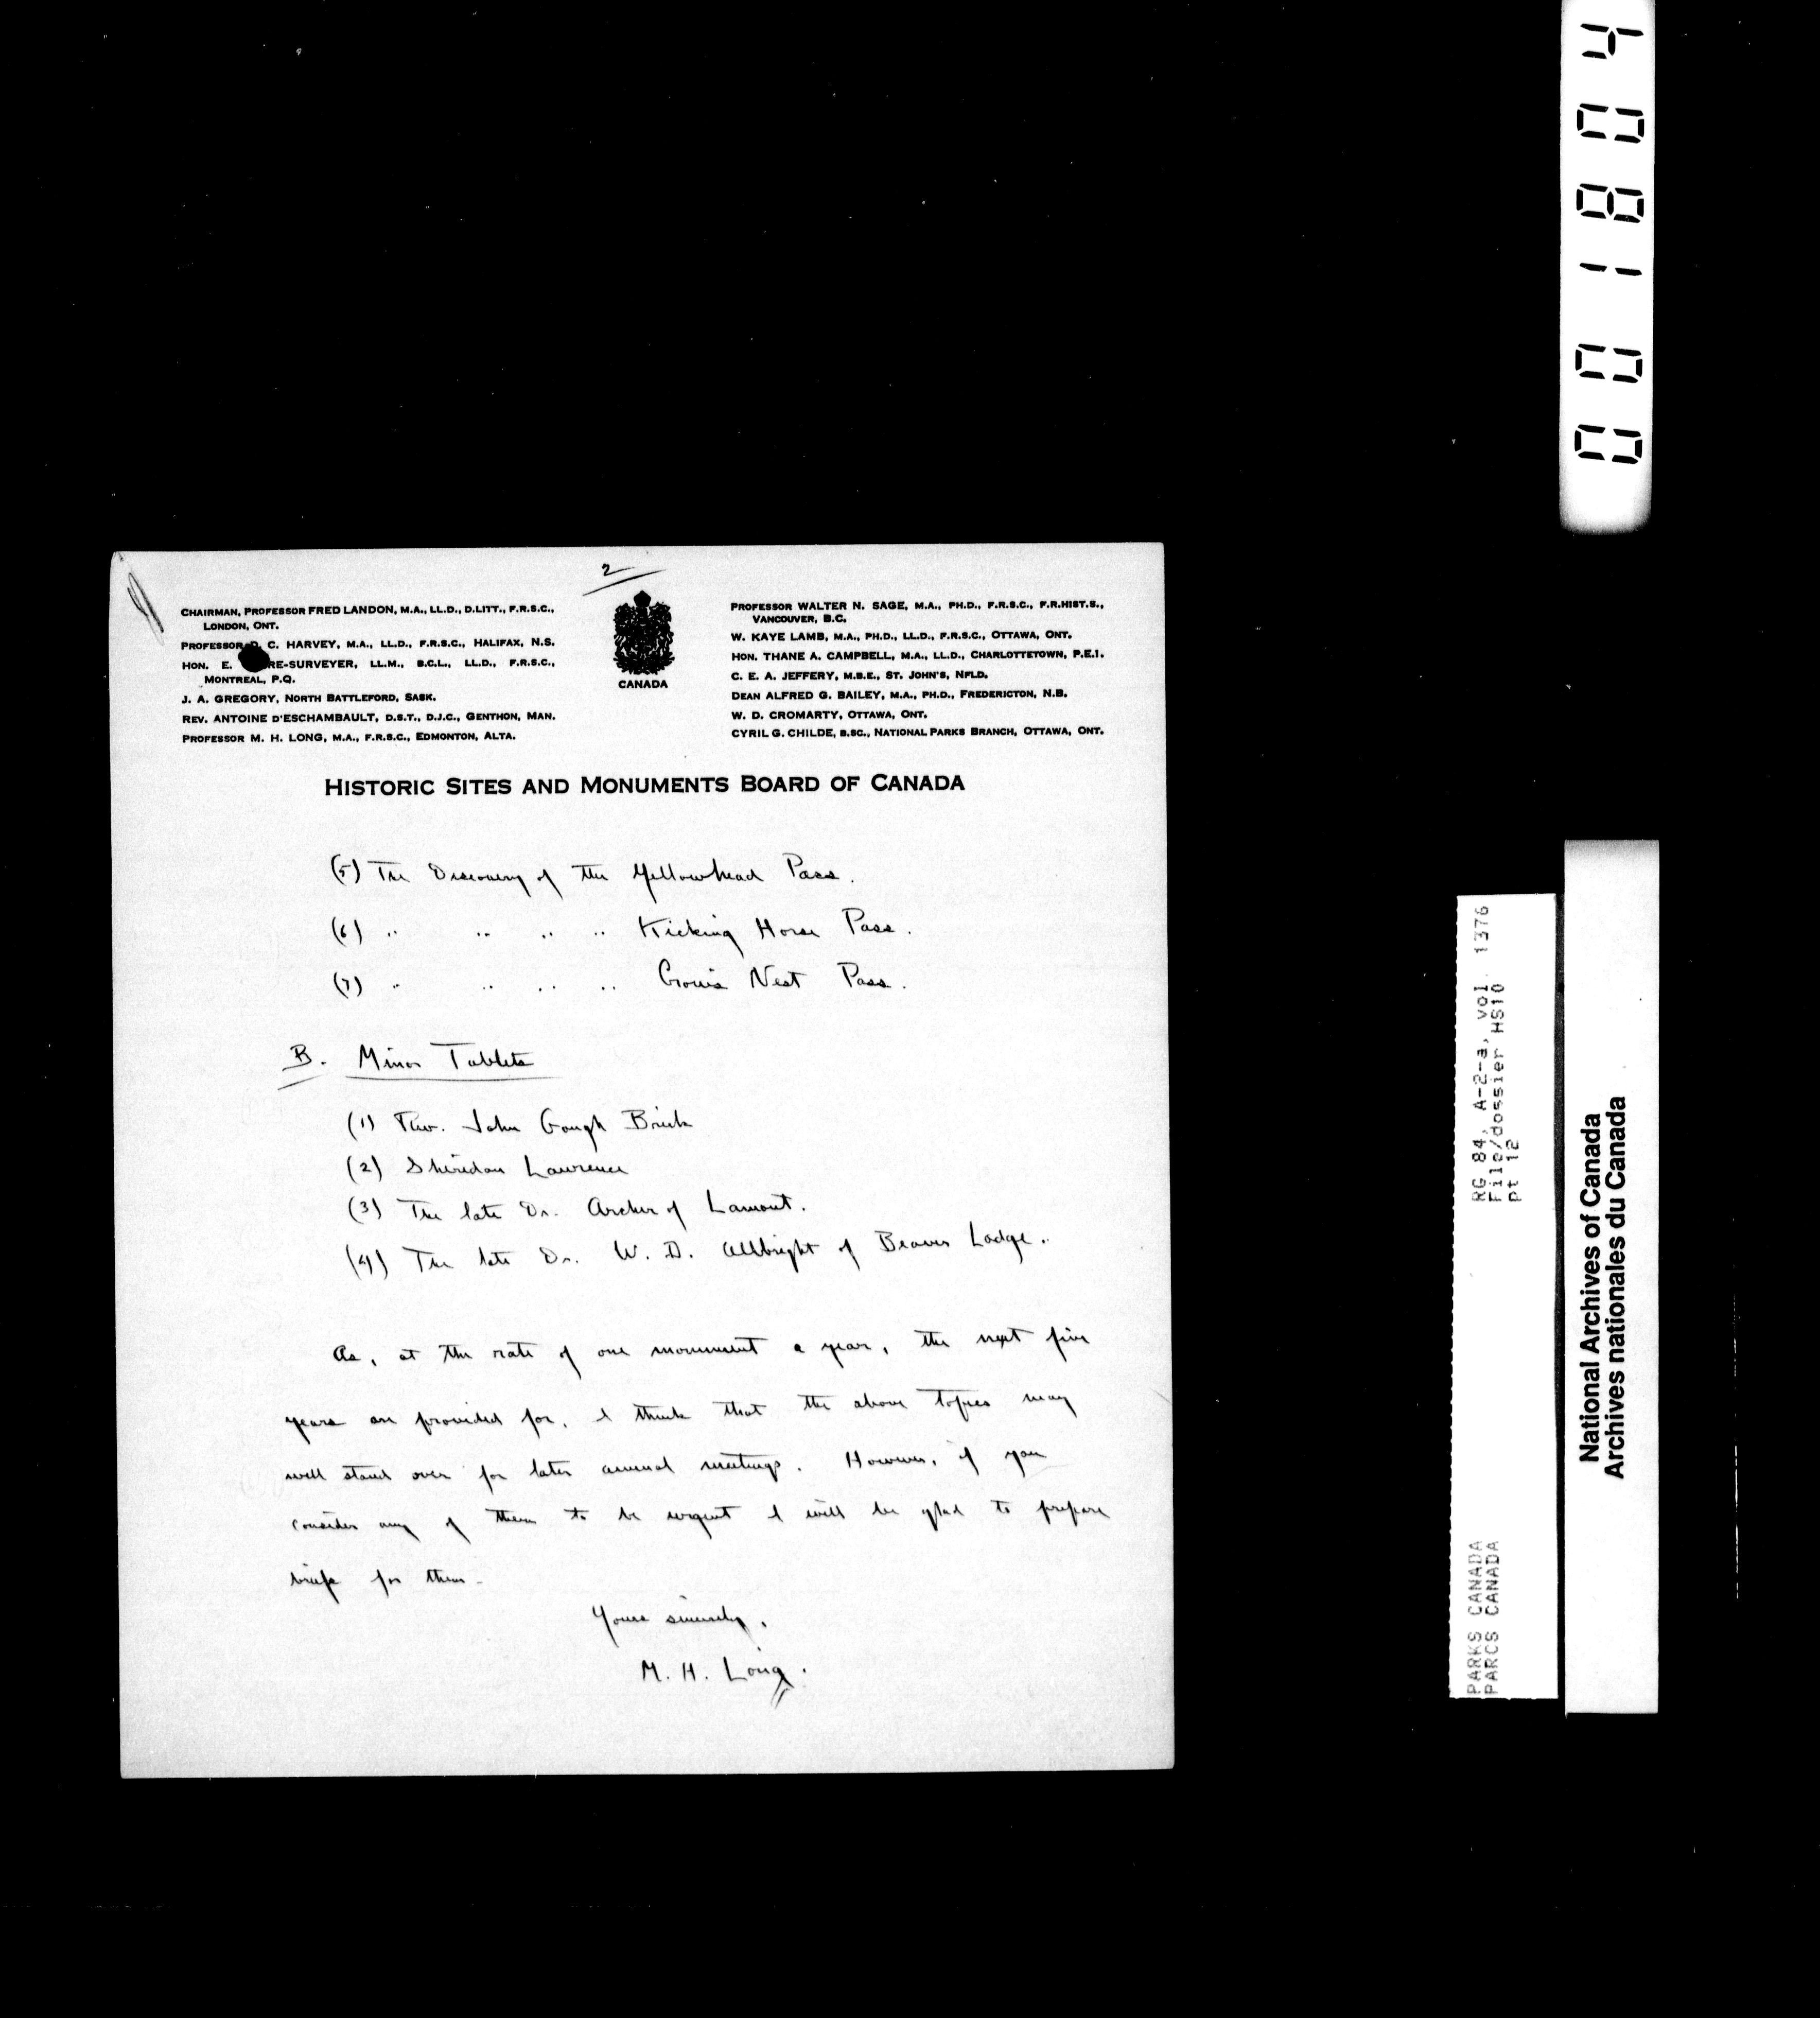 2
CHAIRMAN, PROFESSOR FRED LANDON, M.A., LL.D., D.LITT., F.R.S.C.,
LONDON, ONT.
PROFESSOR D. C. HARVEY, M.A., LL.D., F.R.S.C., HALIFAX, N.S.
HON. E. RE-SURVEYER, LL.M., B.C.L., LL.D., F.R.S.C.,
MONTREAL, P.Q.
J. A. GREGORY, NORTH BATTLEFORD, SASK.
REV. ANTOINE D'ESCHAMBAULT, D.S.T., D.J.C., GENTHON, MAN.
PROFESSOR M. H. LONG, M.A., F.R.S.C., EDMONTON, ALTA.
CANADA
PROFESSOR WALTER N. SAGE, M.A., PH.D., F.R.S.C., F.R.HIST.S.,
VANCOUVER, B.C.
W. KAYE LAMB, M.A., PH.D., LL.D., F.R.S.C., OTTAWA, ONT.
HON. THANE A. CAMPBELL, M.A., LL.D., CHARLOTTETOWN, P.E.I.
C. E. A. JEFFERY, M.B.E., ST. JOHN'S, NFLD.
DEAN ALFRED G. BAILEY, M.A., PH.D., FREDERICTON, N.B.
W. D. CROMARTY, OTTAWA, ONT.
CYRIL G. CHILDE, B.SC., NATIONAL PARKS BRANCH, OTTAWA, ONT.
HISTORIC SITES AND MONUMENTS BOARD OF CANADA
(5) The Discovery of the Yellowhead Pass.
(6) " " " " Kicking Horse Pass.
(7) " " " " Crow's Nest Pass.
B. Minor Tablets
(1) Rev. John Gough Brick
(2) Sheridan Lawrence
(3) The late Dr. Archer of Lamont.
(4) The late Dr. W. D. Allbright of Beaver Lodge.
As, at the rate of one monument a year, the next five
years are provided for, I think that the above topics may
well stand over for later annual meetings. However, if you
consider any of them to be urgent I will be glad to prepare
briefs for them.
Yours sincerely,
M. H. Long.
001804
RG 84, A-2-a, vol. 1376
File/dossier HS10
pt 12
PARKS CANADA
PARCS CANADA
National Archives of Canada
Archives nationales du Canada